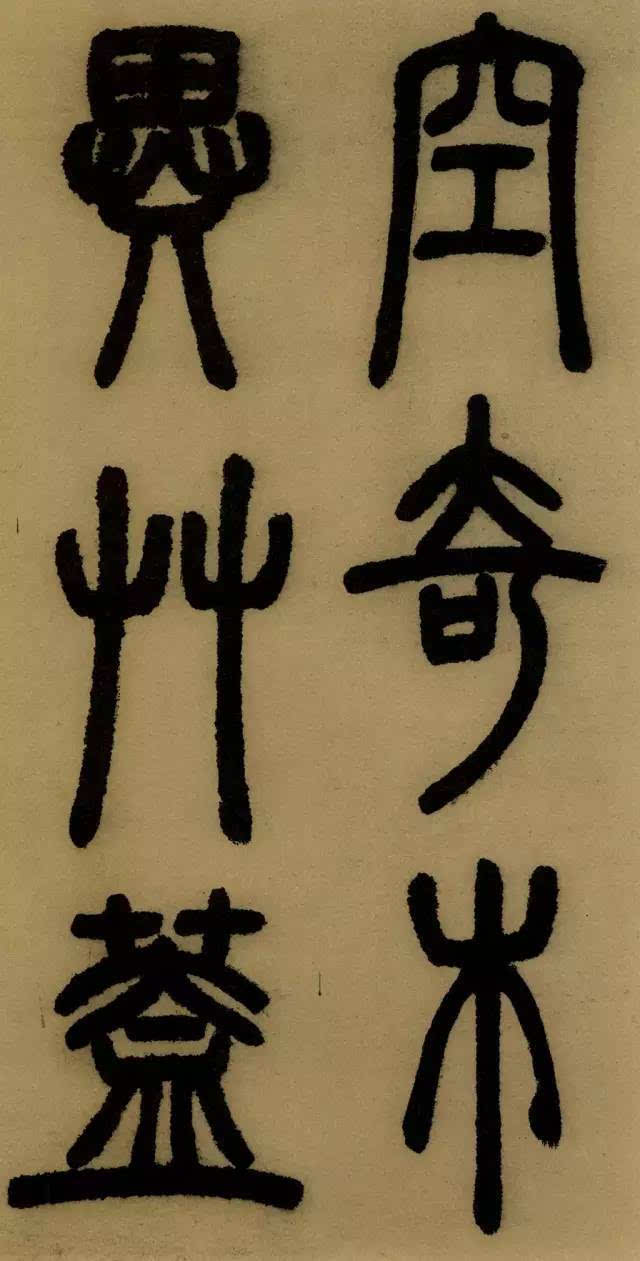 空奇木
異艸蓋